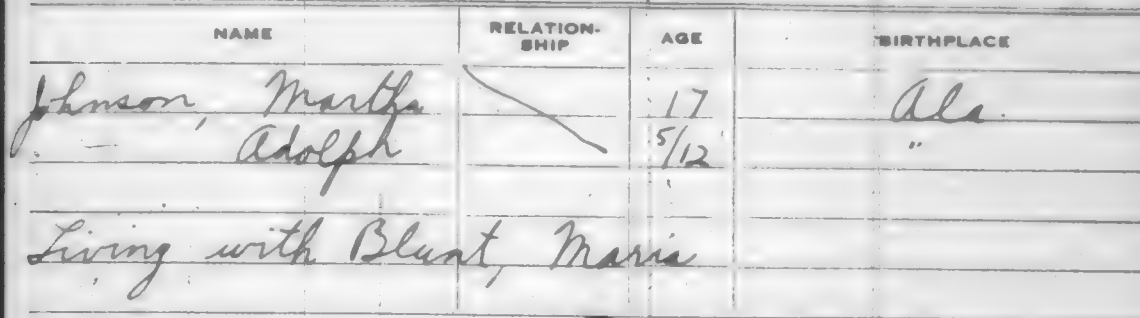 NAME RELATION-SHIP AGE BIRTHPLACE
Johnson, Martha 17 Ala.
— Adolph 5/12 "
Living with Blunt, Maria